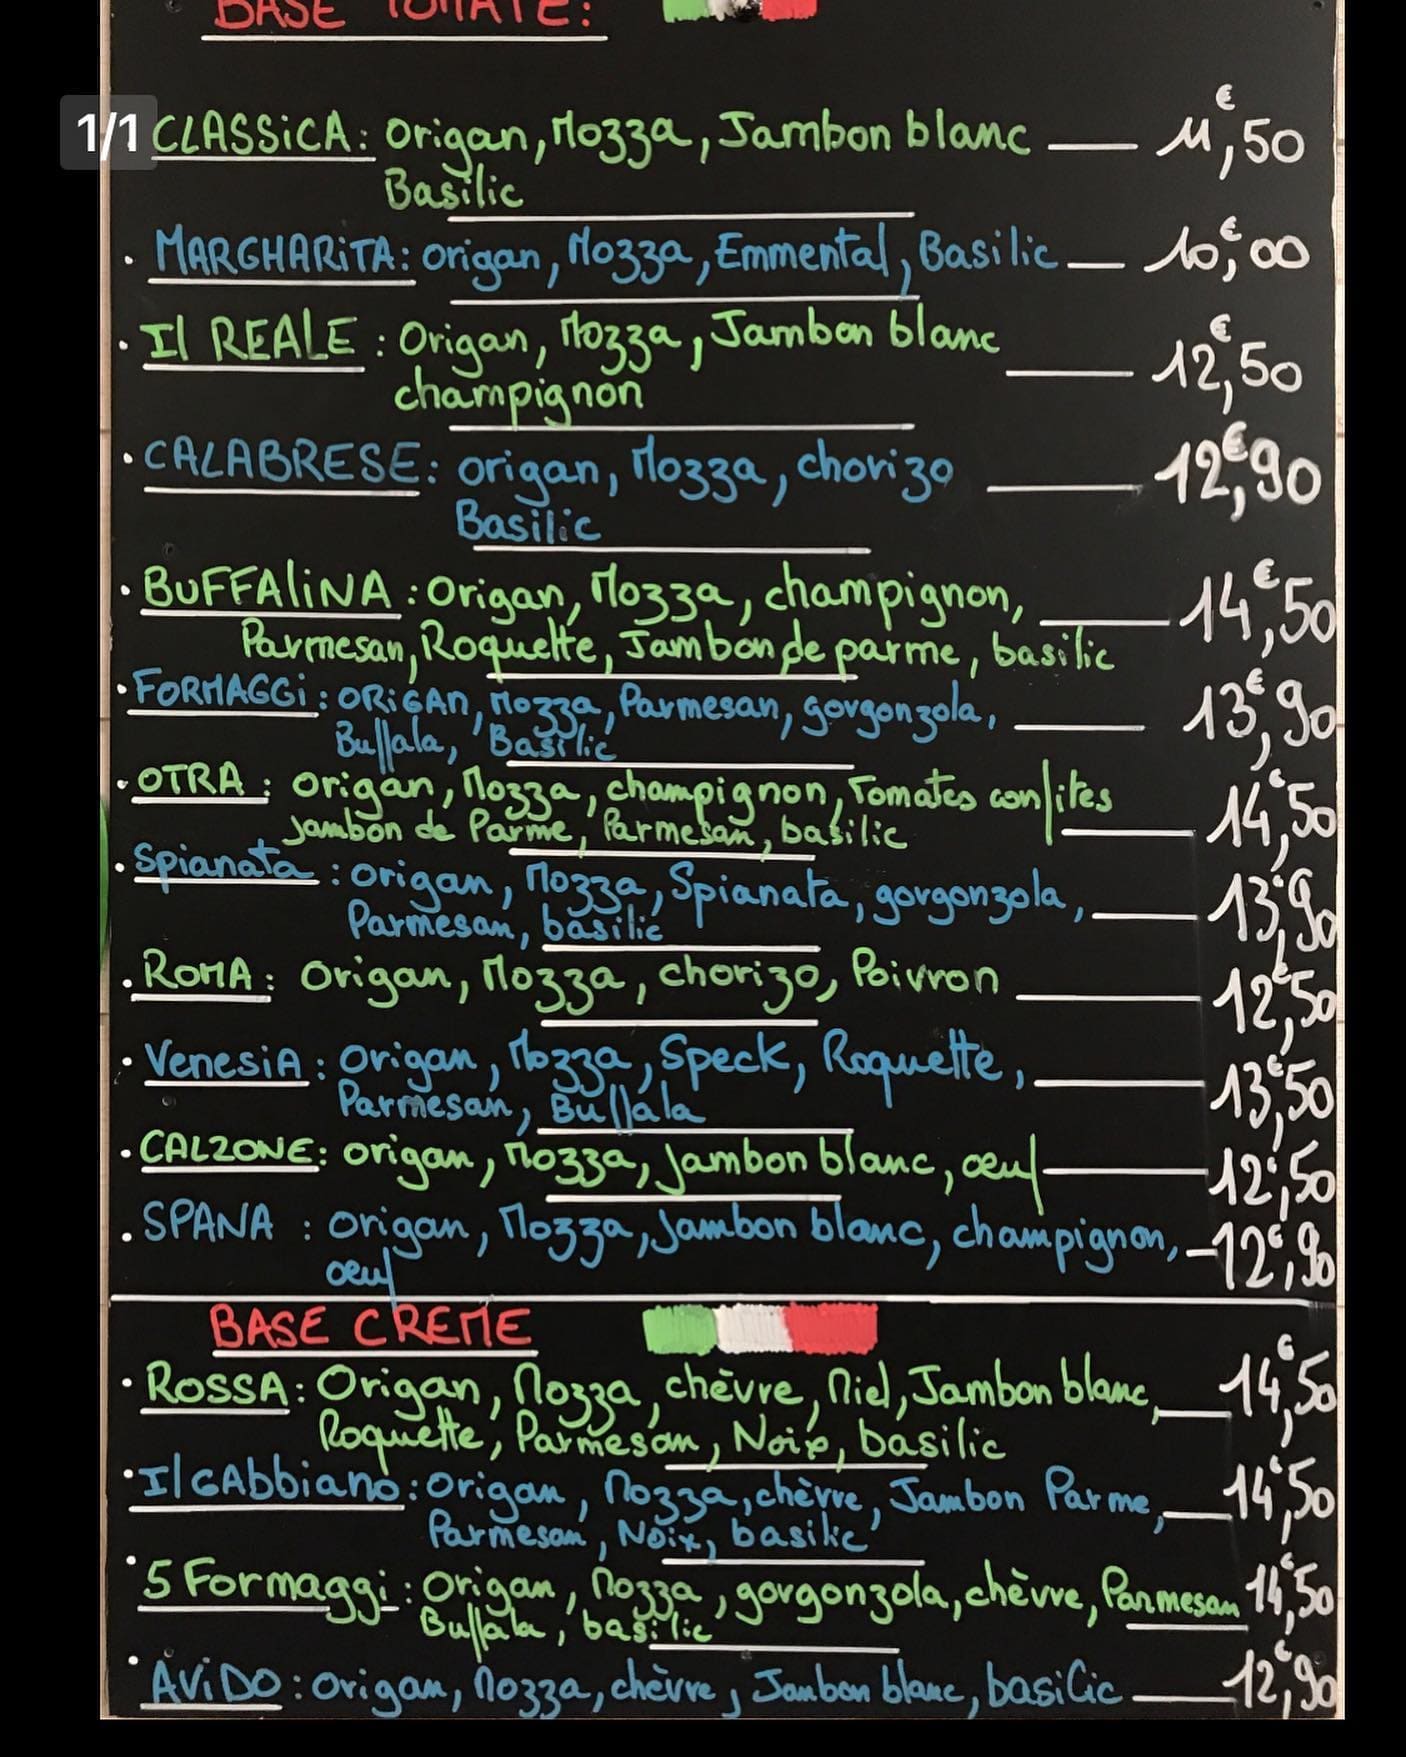 BASE TOMATE:
1/1
CLASSICA: Origan, Mozza, Jambon blanc — 11,€50
Basilic
. MARGHARITA: origan, Mozza, Emmental, Basilic — 10,€00
. Il REALE : Origan, Mozza, Jambon blanc
champignon — 12,€50
. CALABRESE: origan, Mozza, chorizo — 12,€90
Basilic
. BUFFALINA : Origan, Mozza, champignon, — 14,€50
Parmesan, Roquette, Jambon de parme, basilic
. FORMAGGI : ORIGAN, Mozza, Parmesan, gorgonzola, — 13,€90
Buffala, Basilic
. OTRA : origan, Mozza, champignon, Tomates confites
Jambon de Parme, Parmesan, basilic — 14,€50
. Spianata : origan, Mozza, Spianata, gorgonzola, — 13,€90
Parmesan, basilic
. ROMA : Origan, Mozza, chorizo, Poivron — 12,€50
. VENESIA : Origan, Mozza, Speck, Roquette, — 13,€50
Parmesan, Buffala
. CALZONE : origan, Mozza, jambon blanc, oeuf — 12,€50
. SPANA : origan, Mozza, Jambon blanc, champignon, — 12,€90
oeuf
BASE CREME
. ROSSA : Origan, Mozza, chèvre, Miel, Jambon blanc, — 14,€50
Roquette, Parmesan, Noix, basilic
. Il GAbbiano : origan, Mozza, chèvre, Jambon Parme, — 14,€50
Parmesan, Noix, basilic
. 5 Formaggi : Origan, Mozza, gorgonzola, chèvre, Parmesan 14,€50
Buffala, basilic
. AViDO : origan, Mozza, chèvre, Jambon blanc, basilic — 12,€90